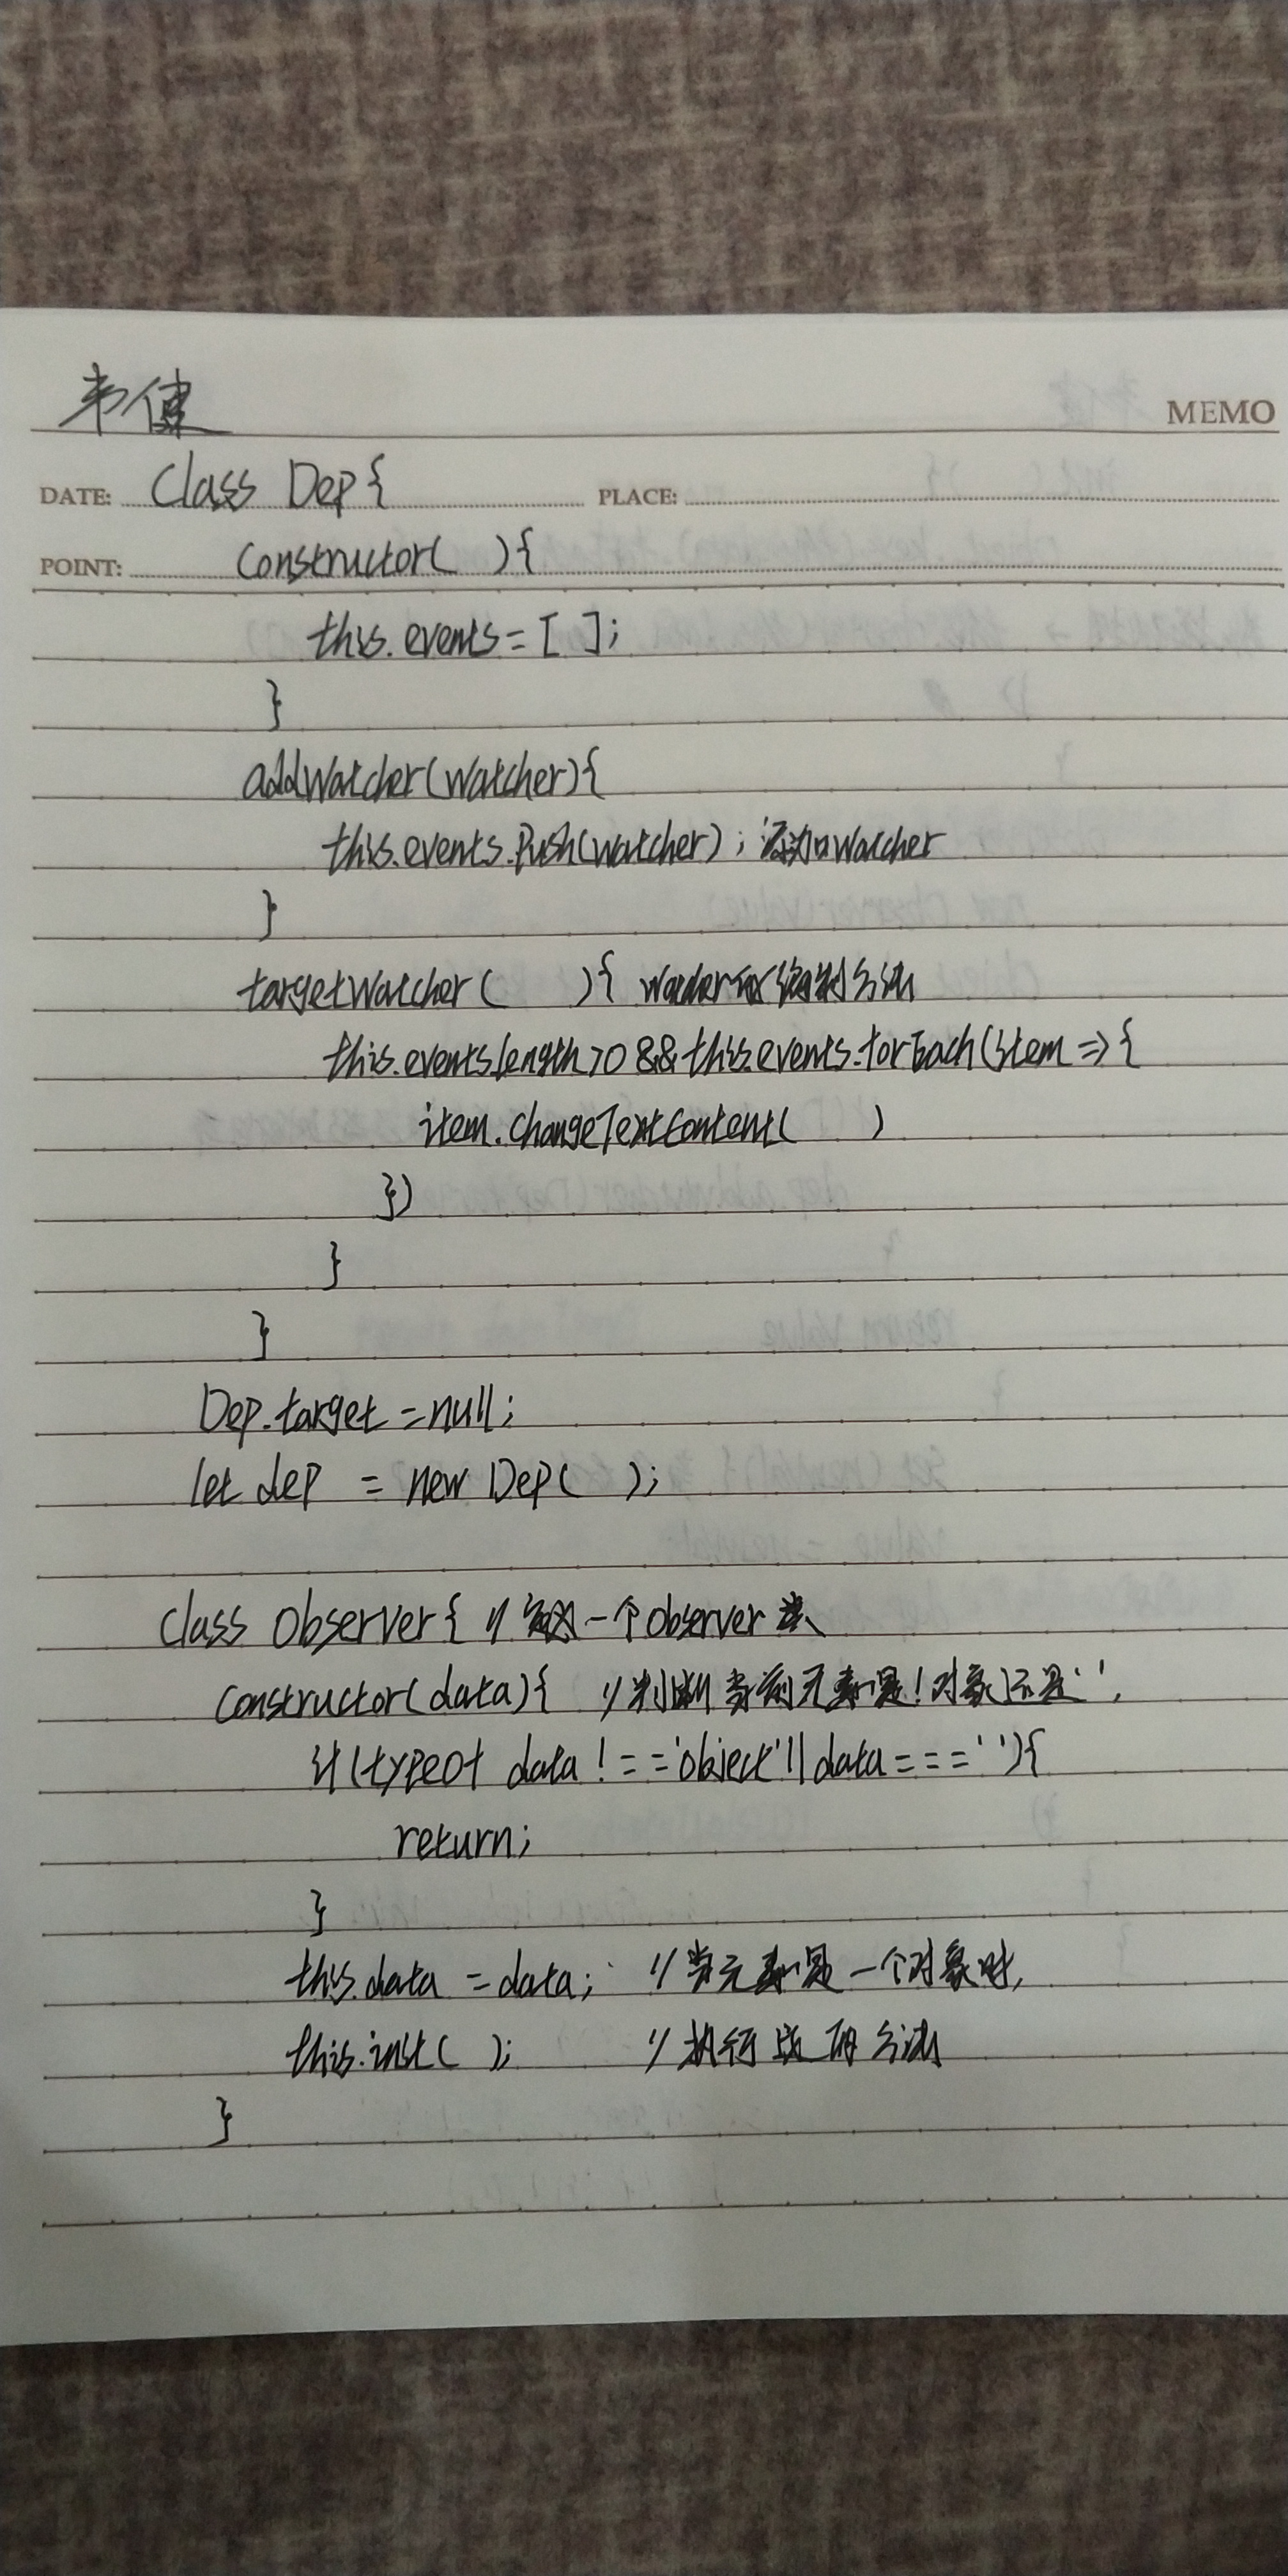 韦健
MEMO
DATE: Class Dep{ PLACE:
POINT: Constructor( ){
this.events=[ ];
}
addWatcher(Watcher){
this.events.Push(watcher); 添加watcher
}
targetWatcher( ){
this.events.length>0&&this.events.forEach(item=>{
item.changeTextContent( )
})
}
}
Dep.target=null;
let dep = new Dep( );
class Observer{ // 一个Observer类
Constructor(data){ //判断当前元素是!对象还是'',
if(typeof data!=='object'||data===''){
return;
}
this.data=data; //当元素是一个对象时,
this.init( ); //执行 方法
}